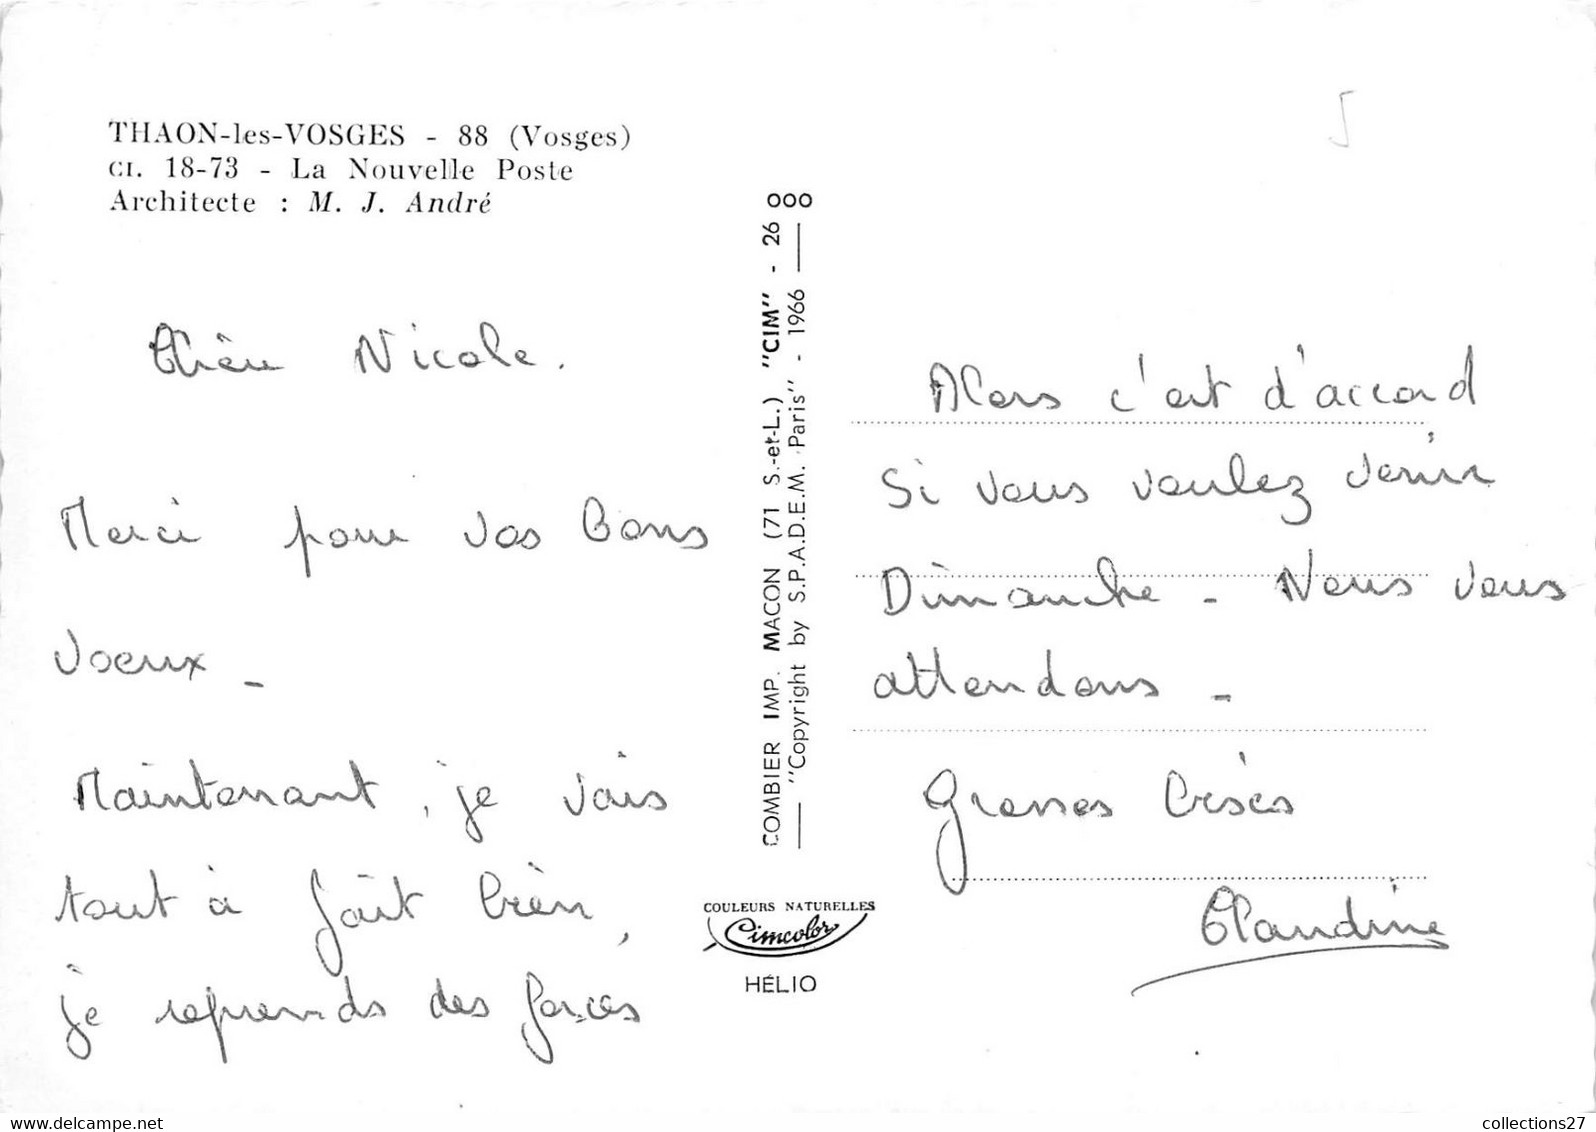 THAON-les-VOSGES - 88 (Vosges)
CI. 18-73 - La Nouvelle Poste
Architecte : M. J. André
Chère Nicole.
Merci pour vos bons
voeux -
Maintenant, je vais
tout à fait bien,
je reprends des forces
COMBIER IMP. MACON (71 S.-et-L.) "CIM" - 26 000
"Copyright by S.P.A.D.E.M. Paris" - 1966
COULEURS NATURELLES
Cimcolor
HÉLIO
5
Alors c'est d'accord
Si vous voulez venir
Dimanche - Nous vous
attendons -
Grosses bises
Claudine
www.delcampe.net
collections27